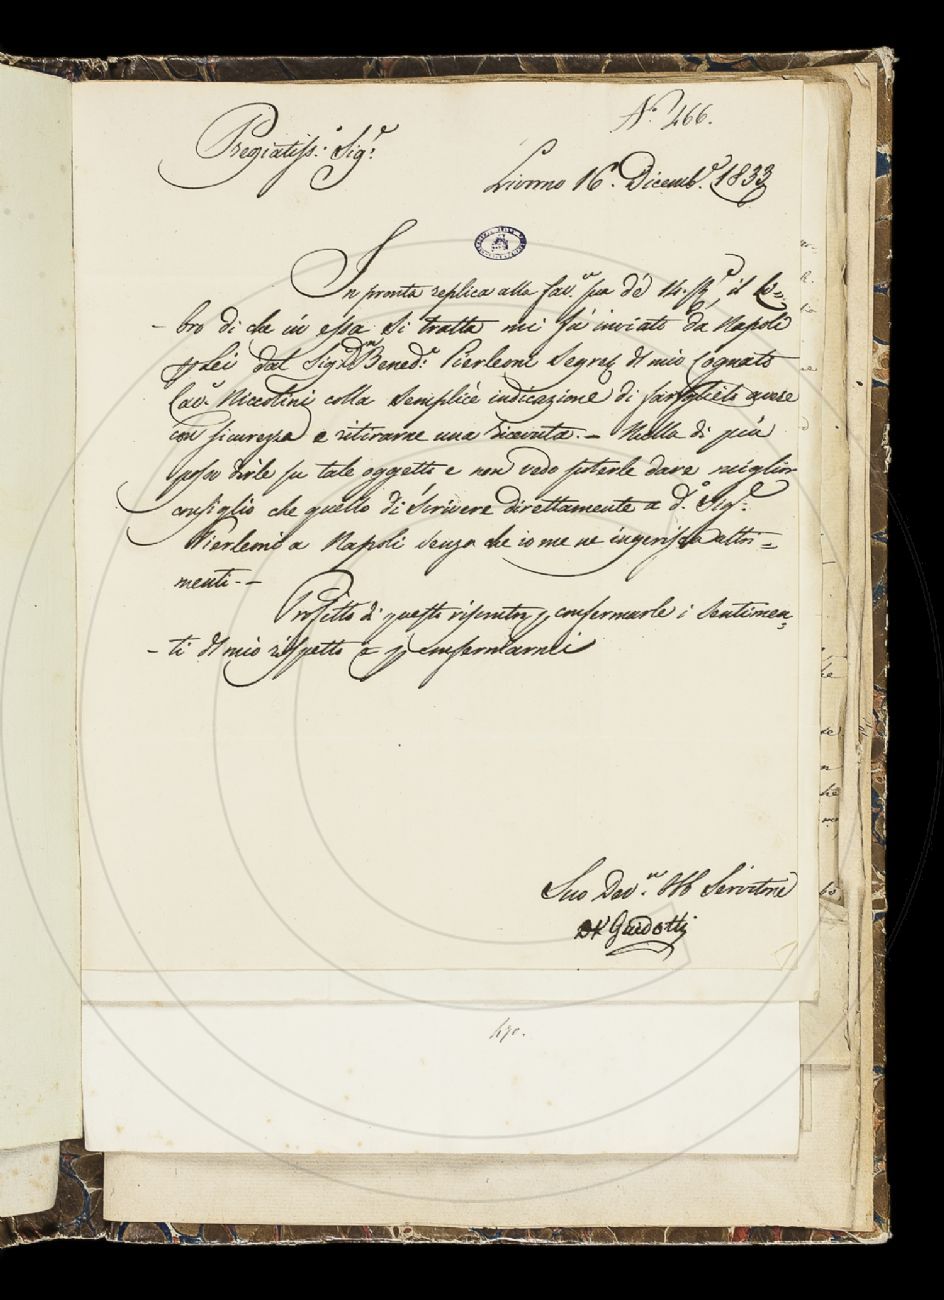 N.° 466.
Pregiatiss.° Sig.e
Livorno 16. Dicemb.e 1833
In pronta replica alla fav.a sua de' 14. , il Li=
bro di che in essa si tratta mi fu inviato da Napoli
p Lei dal Sig.r Dn Bened.o Pierleoni Segret.o del mio Cognato
Cav.r Niccolini colla semplice indicazione di farglielo avere
con sicurezza e ritirarne una ricevuta. – Nulla di più
posso dirle su tale oggetto e non vedo poterle dare miglior
consiglio che quello di scrivere direttamente a d.o Sig.e
Pierleoni a Napoli senza che io me ne ingerisca altri=
menti. –
Profitto di questo riscontro p confermarle i sentimen=
ti del mio rispetto e p confermarmi
Suo Dev.o Obb Servitore
Guidotti
470.